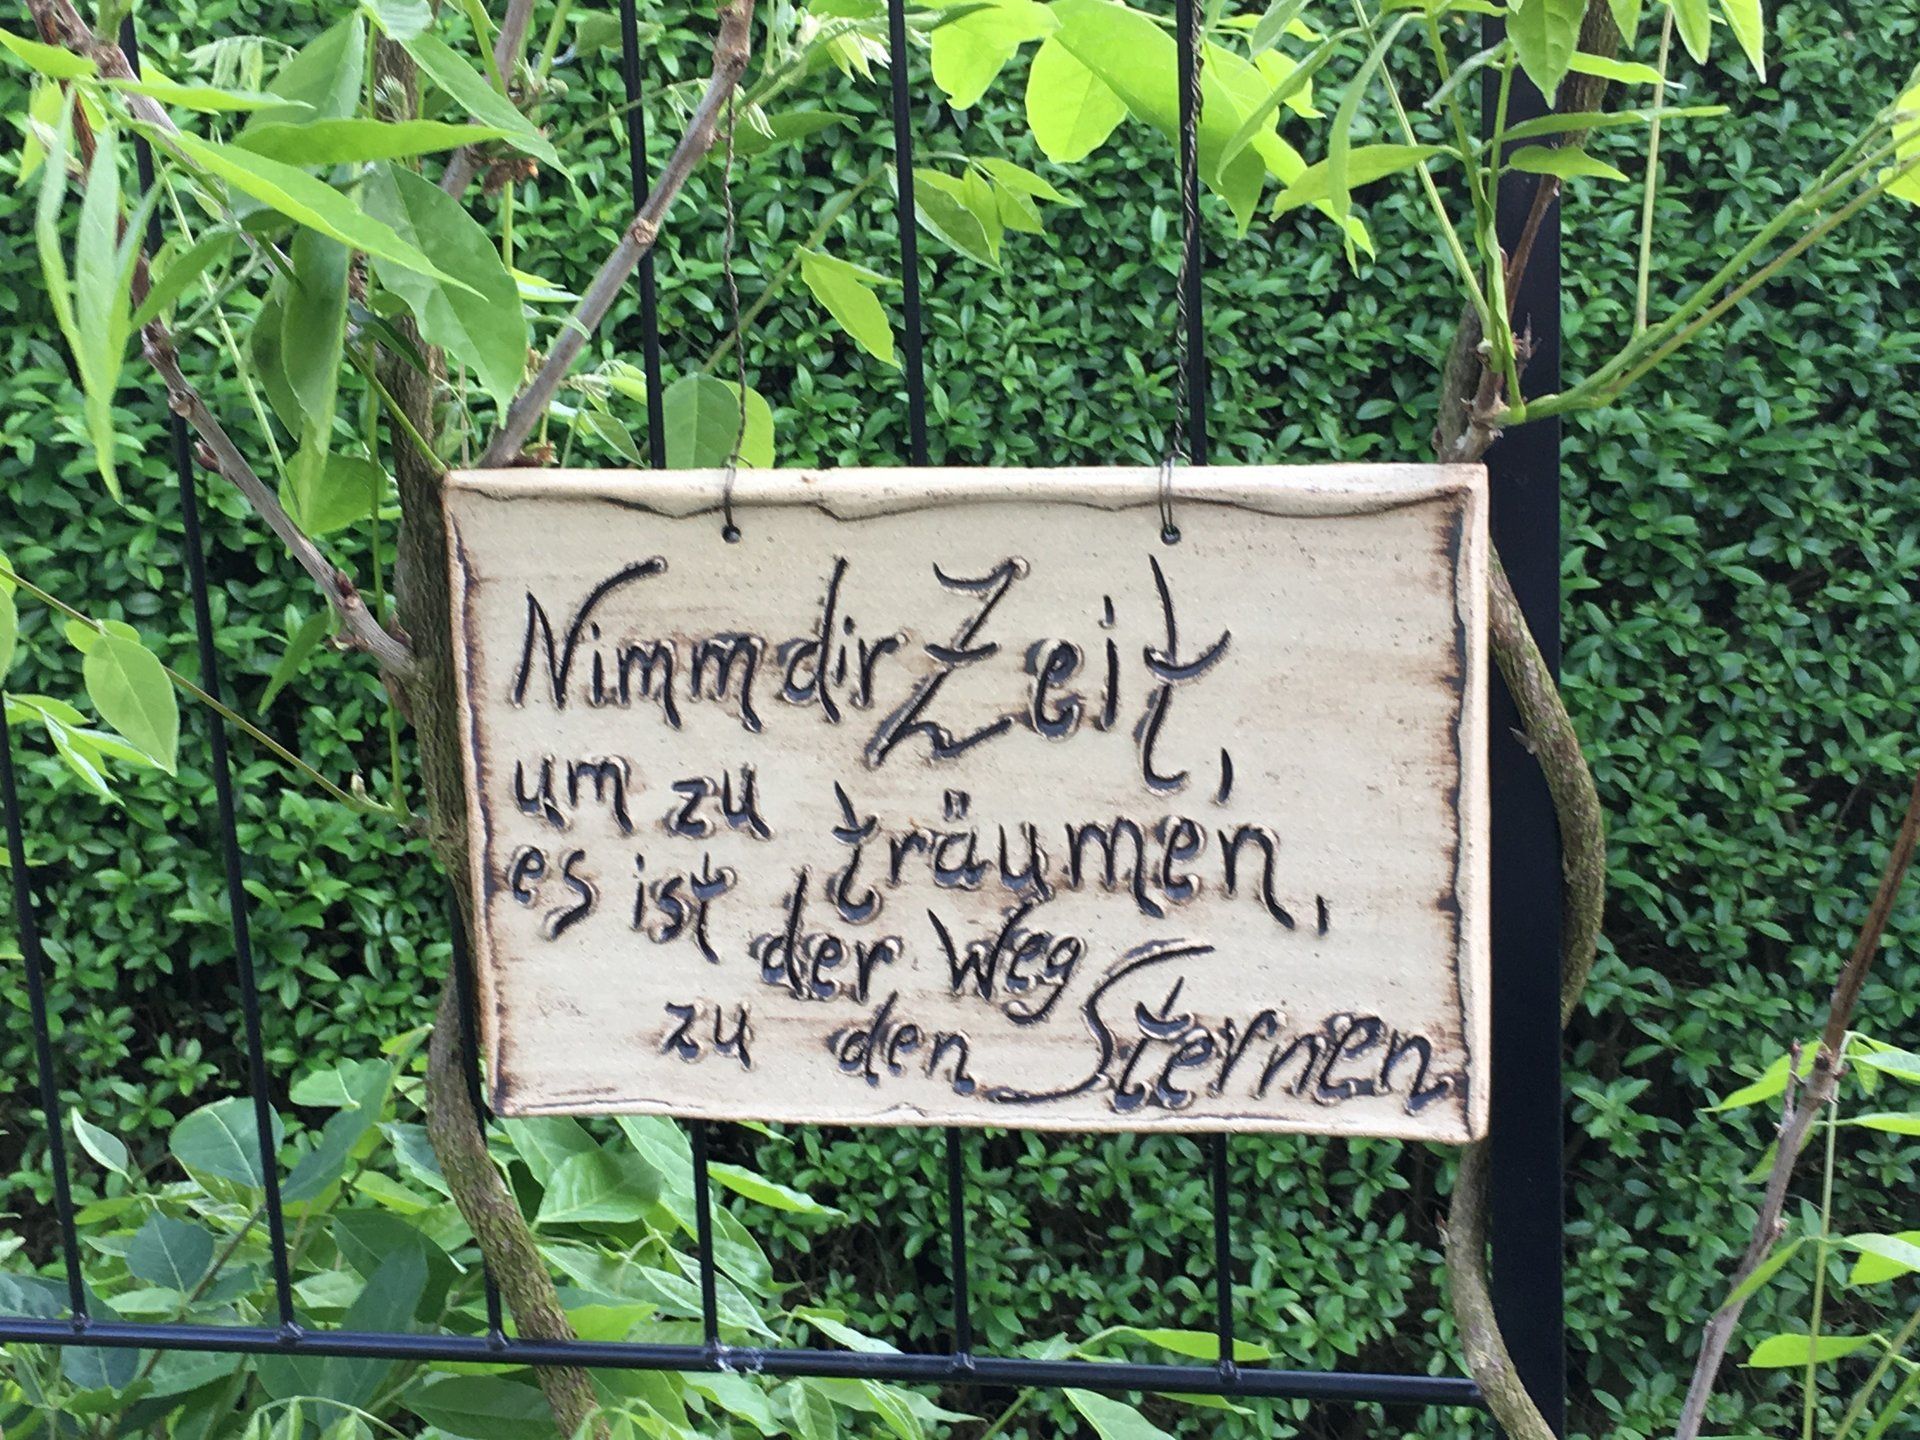 Nimm dir Zeit,
um zu träumen,
es ist der Weg
zu den Sternen